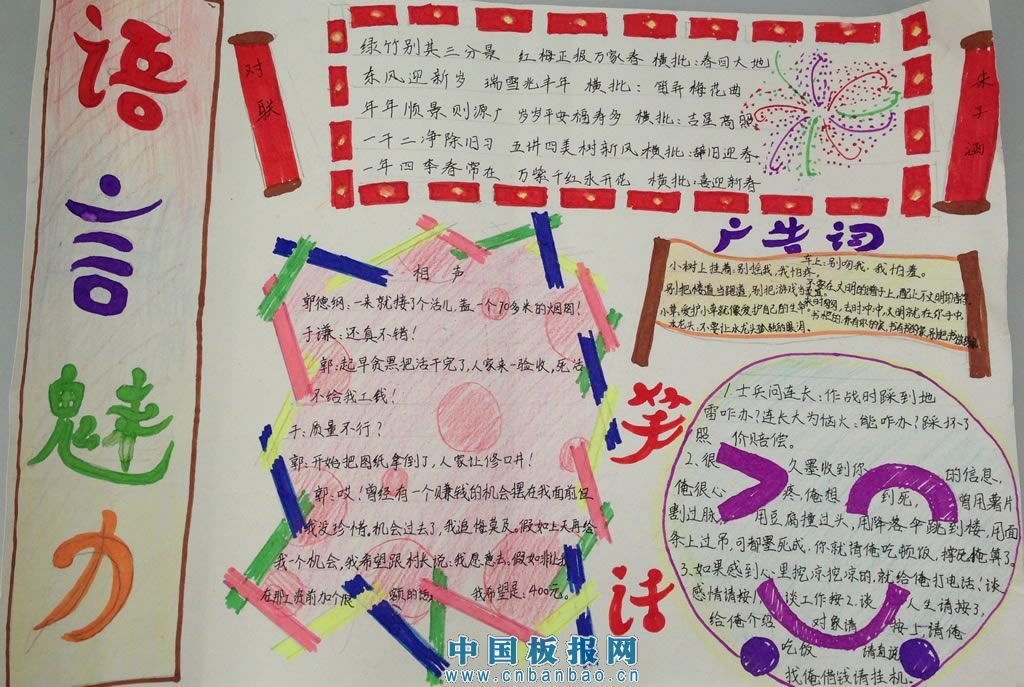 语言魅力
对联
绿竹别其三分景 红梅正报万家春 横批:春回大地
东风迎新岁 瑞雪兆丰年 横批: 笛弄梅花曲
年年顺景则源广 岁岁平安福寿多 横批:吉星高照
一干二净除旧习 五讲四美树新风 横批:辞旧迎春
一年四季春常在 万紫千红永开花 横批:喜迎新春
朱子涵
相声
郭德纲:一来就接了个活儿,盖一个70多米的烟囱!
于谦:还真不错!
郭:起早贪黑把活干完了,人家来一验收,死活
不给我工钱!
于:质量不行?
郭:开始把图纸拿倒了,人家让修口井!
郭:哎!曾经有一个赚钱的机会摆在我面前但
我没珍惜。机会过去了,我追悔莫及。假如上天再给
我一个机会,我希望跟村长说:我愿意去,假如非让我
在那上前加个 额的话, 我希望是:400元。
广告词
小树上挂着:别摇我,我怕疼。
车上:别吻我,我怕羞。
别把楼道当跑道,别把游戏当
小草:爱护小草就像爱护自己的生命。
来时 去时冲冲,文明就在你手中。
水龙头:不要让水龙头孤独的眼泪。
笑话
1.士兵问连长:作战时踩到地
雷咋办?连长大为恼火:能咋办?踩坏了
照 价赔偿。
2.很 久墨收到你 的信息,
俺很心 疼,俺想 到死, 曾用薯片
割过脉, 用豆腐撞过头,用降落伞跳到楼,用面
条上过吊,可都墨死成,你就请俺吃顿饭,撑死俺算了。
3.如果感到心里挖凉挖凉的,就给俺打电话!谈
感情请按1, 谈工作按2,谈 人生请按3,
给俺介绍 对象请 按5,请俺
吃饭 请直说
找俺借钱请挂机。
中国板报网
www.cnbanbao.cn